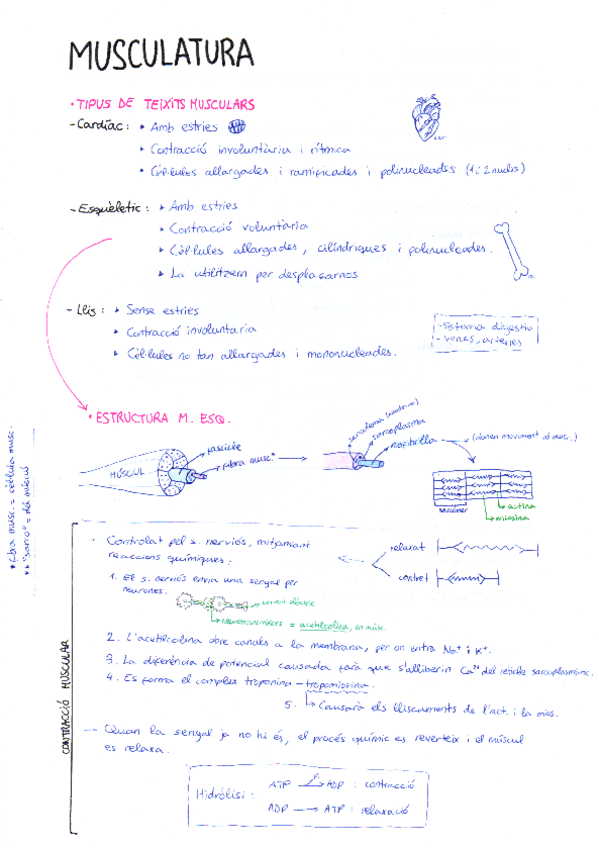 MUSCULATURA
• TIPUS DE TEIXITS MUSCULARS
- Cardíac: • Amb estries
• Contracció involuntària i rítmica
• Cèl·lules allargades i ramificades i polinucleades (1 i 2 nuclis)
- Esquèletic: • Amb estries
• Contracció voluntària
• Cèl·lules allargades, cilíndriques i polinucleades.
• La utilitzem per desplaçarnos
- Llis: • Sense estries
• Contracció involuntaria
• Cèl·lules no tan allargades i mononucleades.
- Sistema digestiu
- venes, arteries
• ESTRUCTURA M. ESQ.
MÚSCUL
fascicle
fibra musc*
sarcolema (membrana)
sarcoplasma
miofibrilla → (donen moviment al musc.)
sarcòmer
actina
miosina
* fibra musc = cèl·lula musc.
** "sarco" = de múscul
CONTRACCIÓ MUSCULAR
• Controlat pel s. nerviós, mitjançant
reaccions químiques:
relaxat
contret
1. El s. nerviós envia una senyal per
neurones.
neurotransmissors = acetilcolina, en musc.
2. L'acetilcolina obre canals a la membrana, per on entra Na⁺ i K⁺.
3. La diferència de potencial causada farà que s'alliberin Ca²⁺ del reticle sarcoplasmàtic.
4. Es forma el complex troponina - tropomiosina.
5. Causarà els lliscaments de l'act. i la mios.
— Quan la senyal ja no hi és, el procés químic es reverteix i el múscul
es relaxa.
Hidròlisi:
ATP → ADP : contracció
ADP → ATP : relaxació